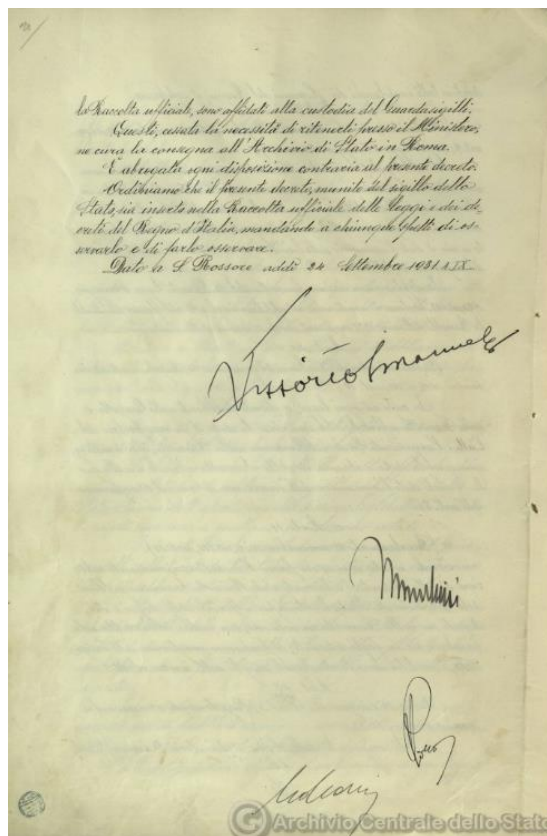 la Raccolta ufficiale, sono affidati alla custodia del Guardasigilli.
Questi, cessata la necessità di ritenerli presso il Ministero,
ne cura la consegna all'Archivio di Stato in Roma.
È abrogata ogni disposizione contraria al presente decreto.
Ordiniamo che il presente decreto, munito del sigillo dello
Stato, sia inserto nella Raccolta ufficiale delle leggi e dei de-
creti del Regno d'Italia, mandando a chiunque spetti di os-
servarlo e di farlo osservare.
Dato a S. Rossore addì 24 Settembre 1931 IX
Vittorio Emanuele
Mussolini
Rocco
© Archivio Centrale dello Stato